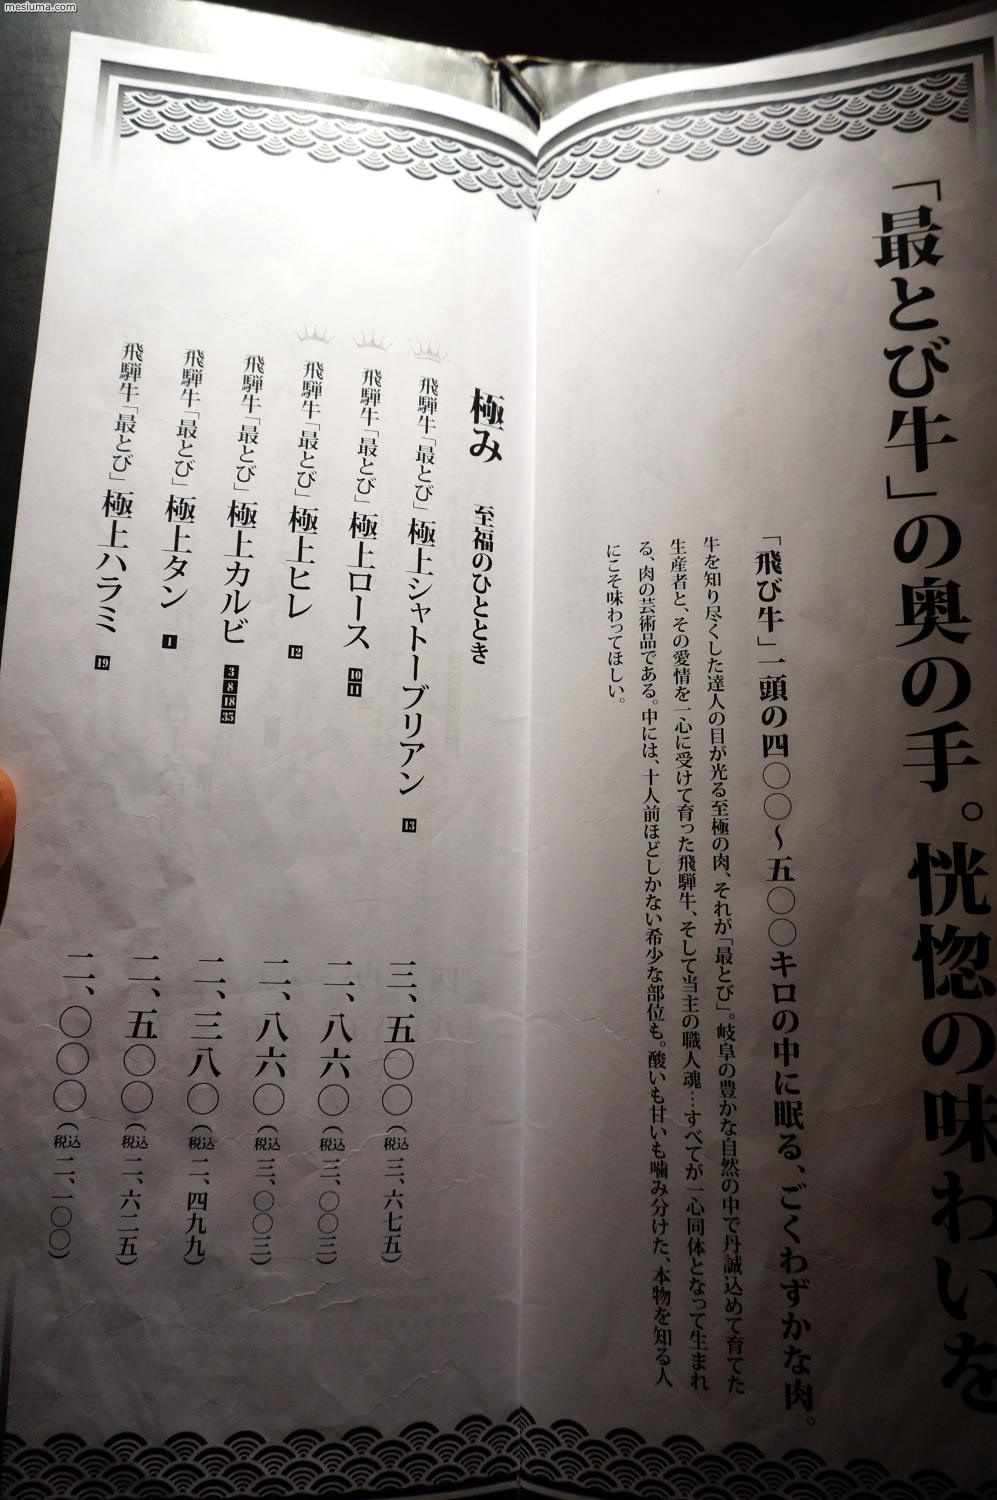 mesiuma.com
「最とび牛」の奥の手。恍惚の味わいを
「飛び牛」一頭の四〇〇～五〇〇キロの中に眠る、ごくわずかな肉。
牛を知り尽くした達人の目が光る至極の肉、それが「最とび」。岐阜の豊かな自然の中で丹誠込めて育てた
生産者と、その愛情を一心に受けて育った飛騨牛、そして当主の職人魂…すべてが一心同体となって生まれ
る、肉の芸術品である。中には、十人前ほどしかない希少な部位も。酸いも甘いも噛み分けた、本物を知る人
にこそ味わってほしい。
極み 至福のひととき
飛騨牛「最とび」極上シャトーブリアン 13 三、五〇〇(税込 三、六七五)
飛騨牛「最とび」極上ロース 10 11 二、八六〇(税込 三、〇〇三)
飛騨牛「最とび」極上ヒレ 12 二、八六〇(税込 三、〇〇三)
飛騨牛「最とび」極上カルビ 3 8 18 35 二、三八〇(税込 二、四九九)
飛騨牛「最とび」極上タン 1 二、五〇〇(税込 二、六二五)
飛騨牛「最とび」極上ハラミ 19 二、〇〇〇(税込 二、一〇〇)